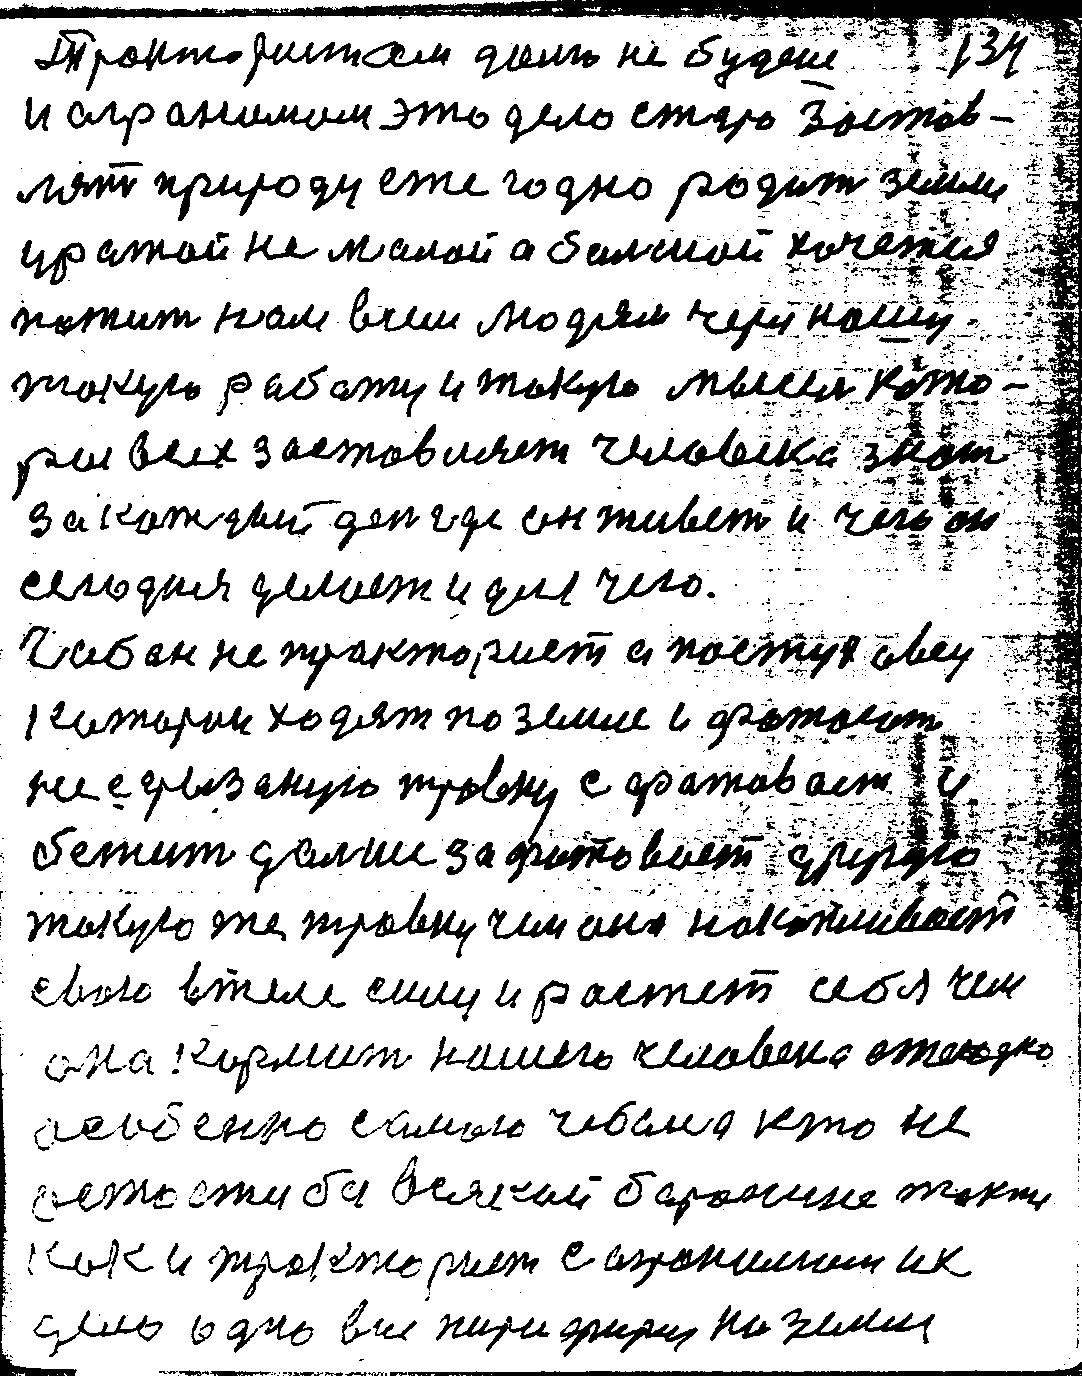 Трактористам дело не будеш 134
и аграномом это дело стара Застав-
лят природу еже годно родит земли
уражай не малой а балшой хочется
пожит нам всим людям чериз нашу
такую работу и такую мысля като-
рие всех заставляет человека знат
за каждый ден где он живет и чего он
сегодня делает и для чего.
Чабан не тракторист а пастух овец
Катории ходят по земле и
траву с и
бежит далше за другую
такую же травку чем она накапливает
свою втеле силу и растет себя чем
она кормит нашего человека ежегодно
особенно самого чабана кто не
всякой баранине так же
как и тракторист с аграномам их
дело одно все на земли